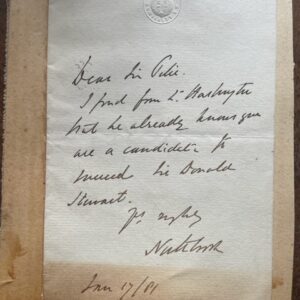 Dear Sir Peter.
I find from Ld. Hartington
that he already knows you
are a candidate to
succeed Sir Donald
Stewart.
Yrs very truly
Northbrook
Jan 17/81